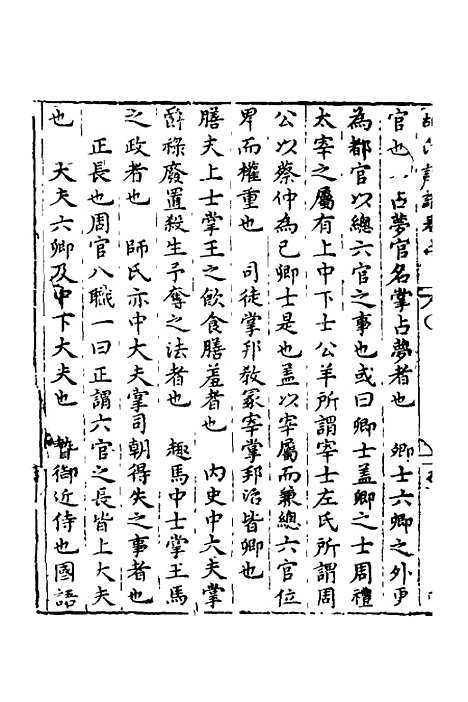 官也　占夢官名掌占夢者也　卿士六卿之外更
為都官以總六官之事也或曰卿士蓋卿之士周禮
太宰之屬有上中下士公羊所謂宰士左氏所謂周
公以蔡仲為己卿士是也盖以宰屬而兼總六官位
卑而權重也　司徒掌邦教冢宰掌邦治皆卿也
膳夫上士掌王之飲食膳羞者也　內史中大夫掌
爵祿廢置殺生予奪之法者也　趣馬中士掌王馬
之政者也　師氏亦中大夫掌司朝得失之事者也
正長也周官八職一曰正謂六官之長皆上大夫
也　大夫六卿及中下大夫也　暬御近侍也國語